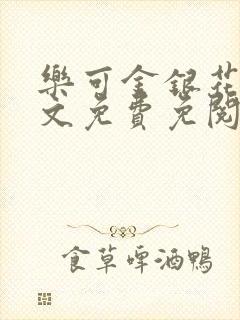 樂可金銀花
文免費免閱
食草啤酒鴨